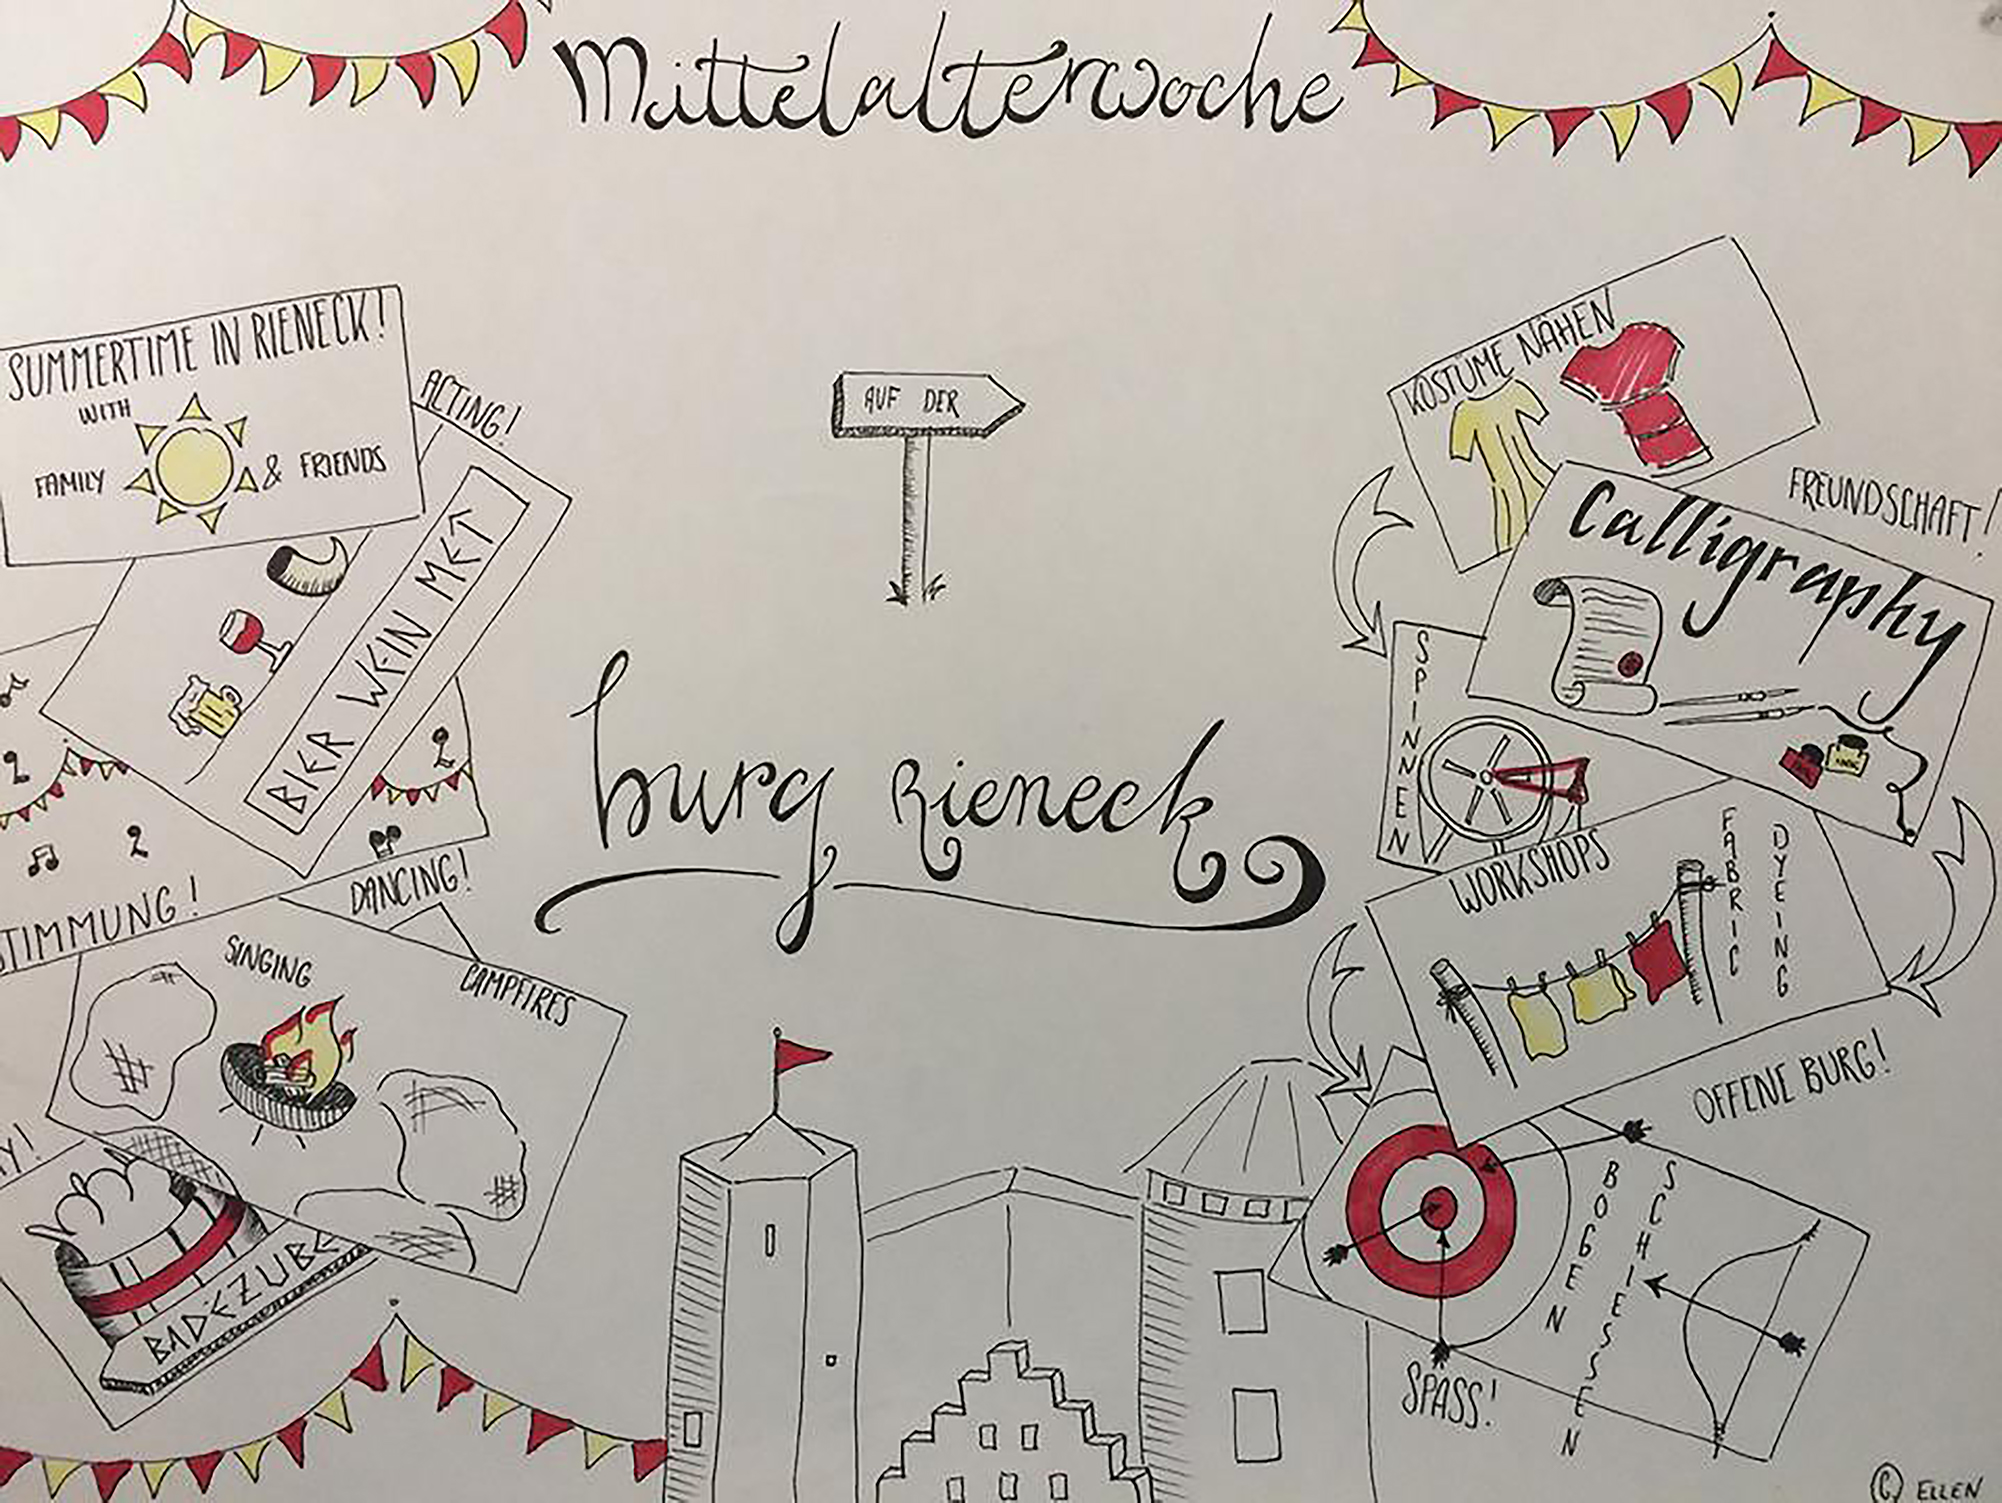 Mittelalterwoche
AUF DER
burg Rieneck
SUMMERTIME IN RIENECK!
WITH
FAMILY & FRIENDS
ACTING!
BIER WEIN MET
DANCING!
SINGING
CAMPFIRES
BADEZUBE
KOSTÜME NÄHEN
FREUNDSCHAFT!
Calligraphy
SPINNEN
WORKSHOPS
FABRIC
DYEING
OFFENE BURG!
BOGEN
SCHIESSEN
SPASS!
© ELLEN